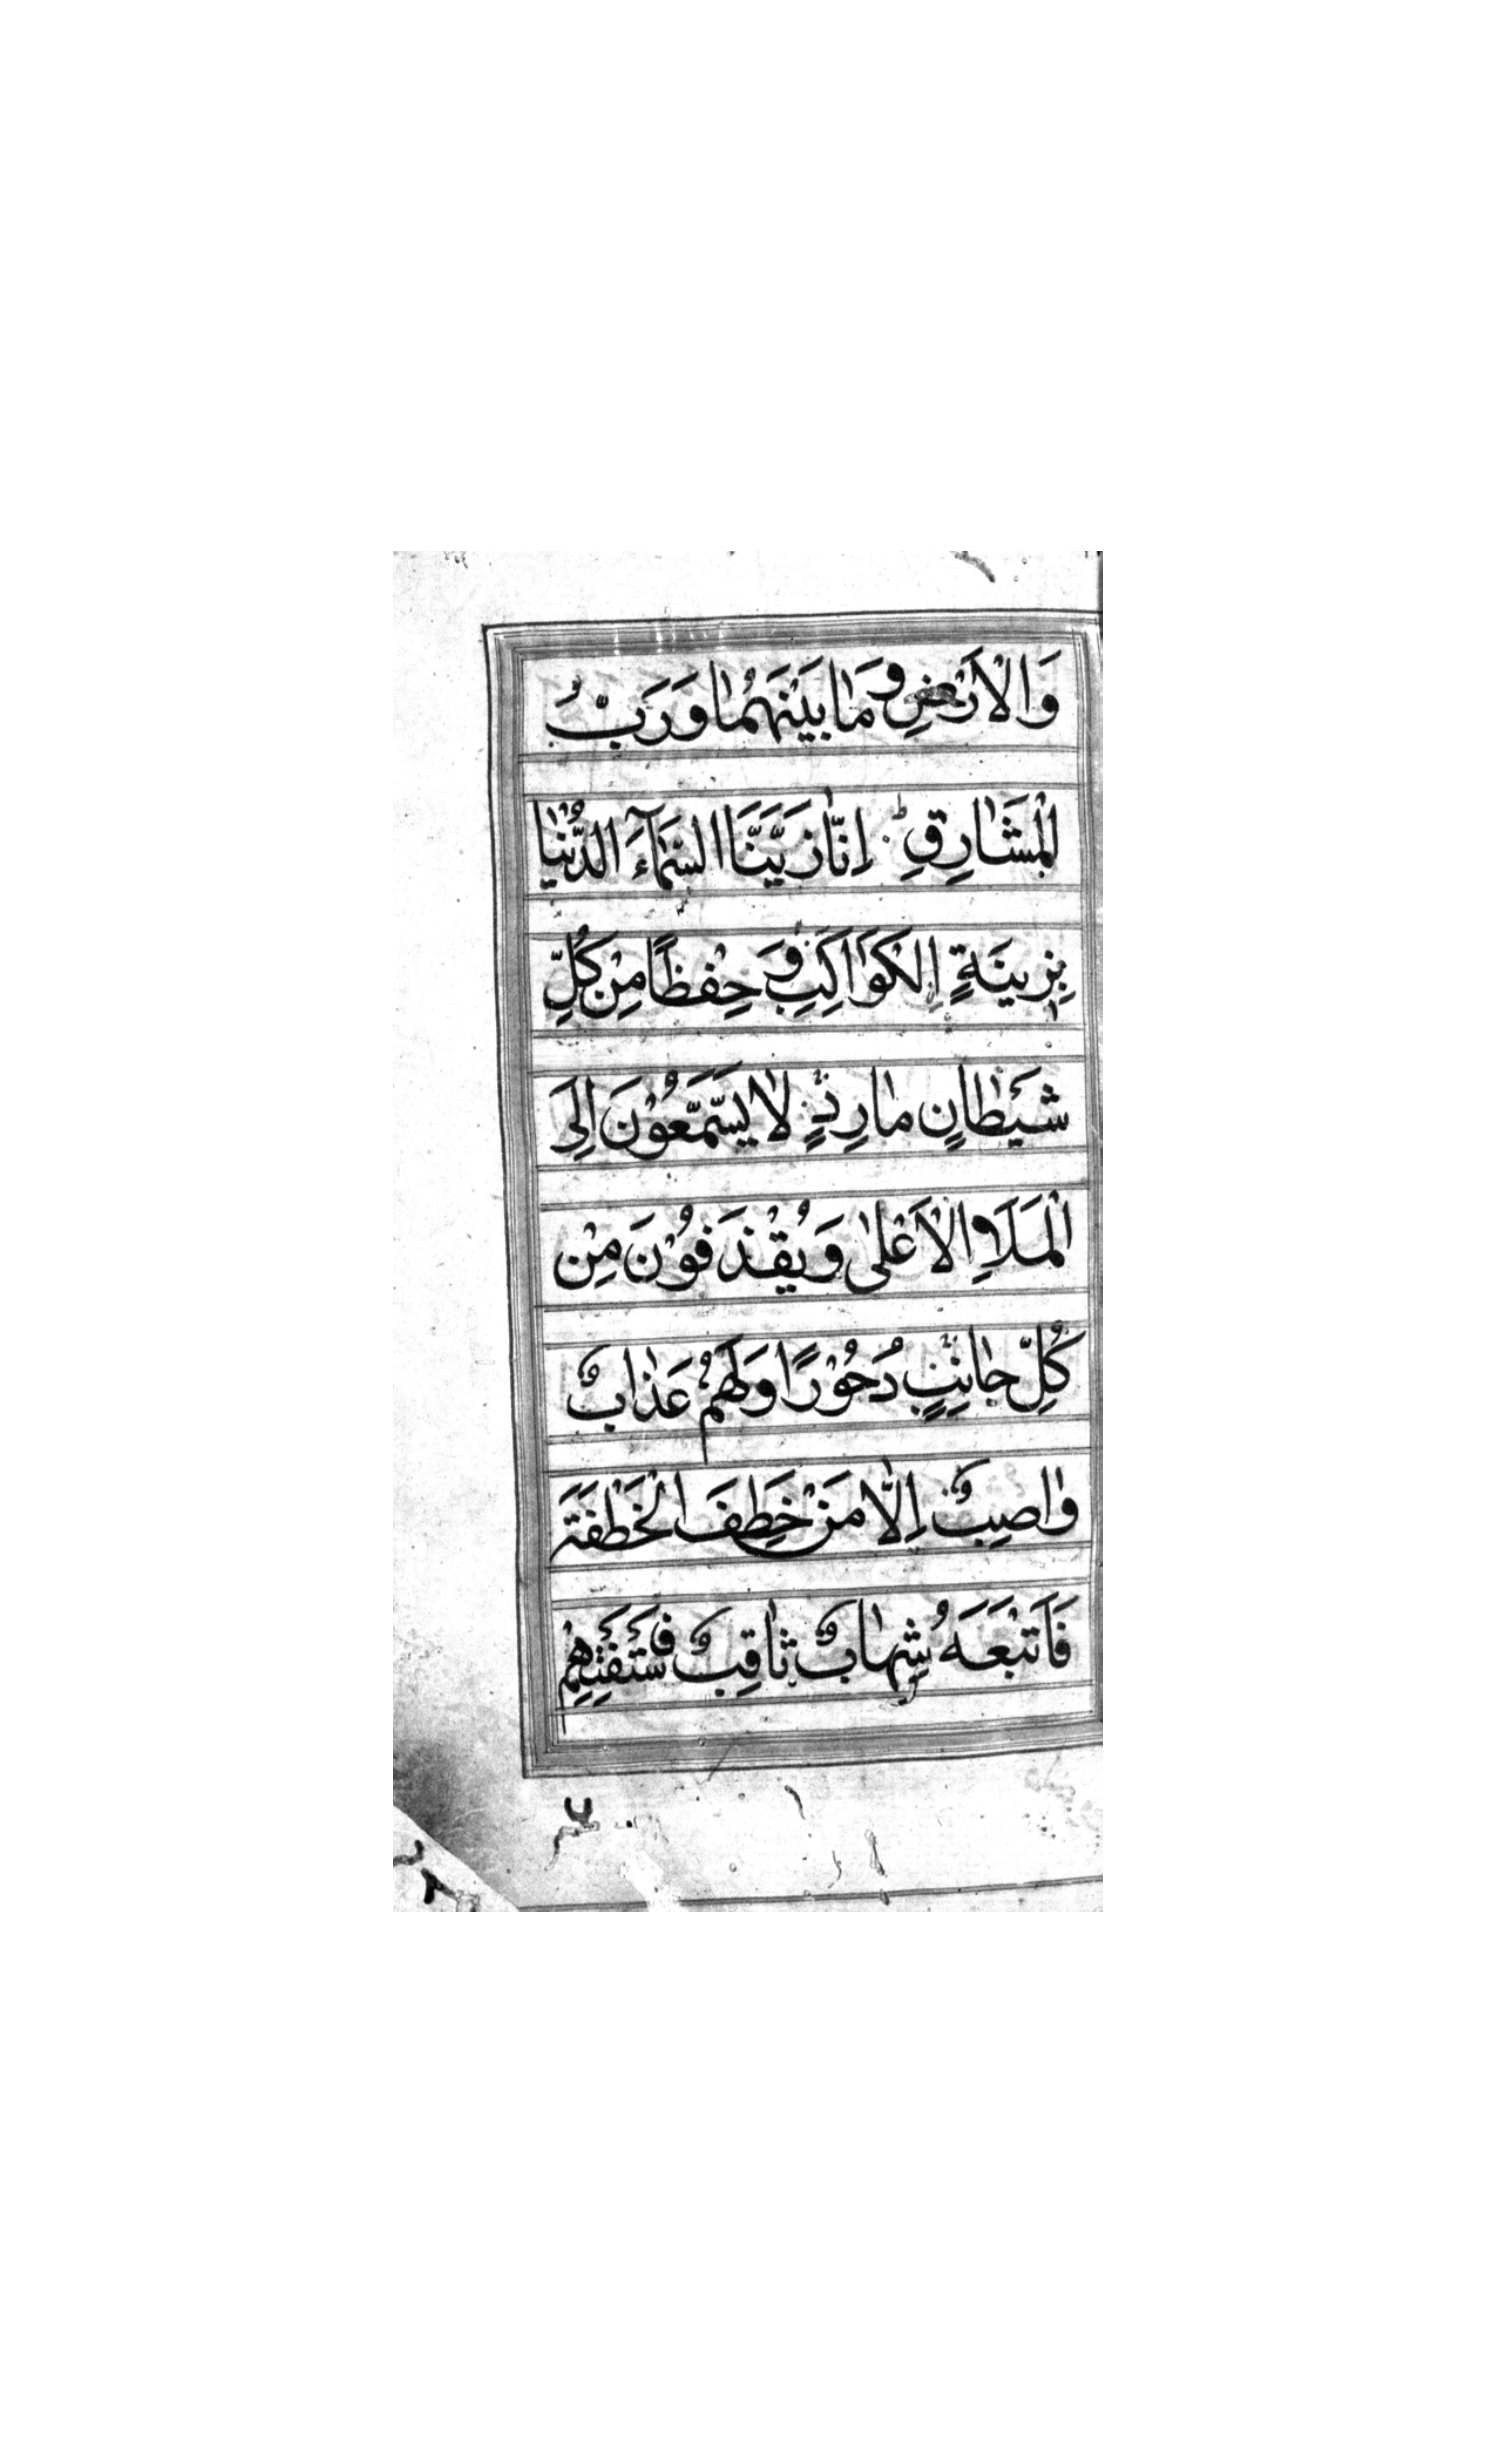 وَالْاَرْضِ وَمَا بَيْنَهُمَا وَرَبُّ
الْمَشَارِقِ ط اِنَّا زَيَّنَّا السَّمَآءَ الدُّنْيَا
بِزِينَةٍ اِلْكَوَاكِبِ وَ حِفْظًا مِنْ كُلِّ
شَيْطَانٍ مَارِدٍ لَا يَسَّمَّعُوْنَ اِلَى
الْمَلَاِ الْاَعْلٰى وَيُقْذَفُوْنَ مِنْ
كُلِّ جَانِبٍ دُحُوْرًا وَلَهُمْ عَذَابٌ
وَاصِبٌ اِلَّا مَنْ خَطِفَ الْخَطْفَةَ
فَاَتْبَعَهُ شِهَابٌ ثَاقِبٌ فَسْتَفْتِهِمْ